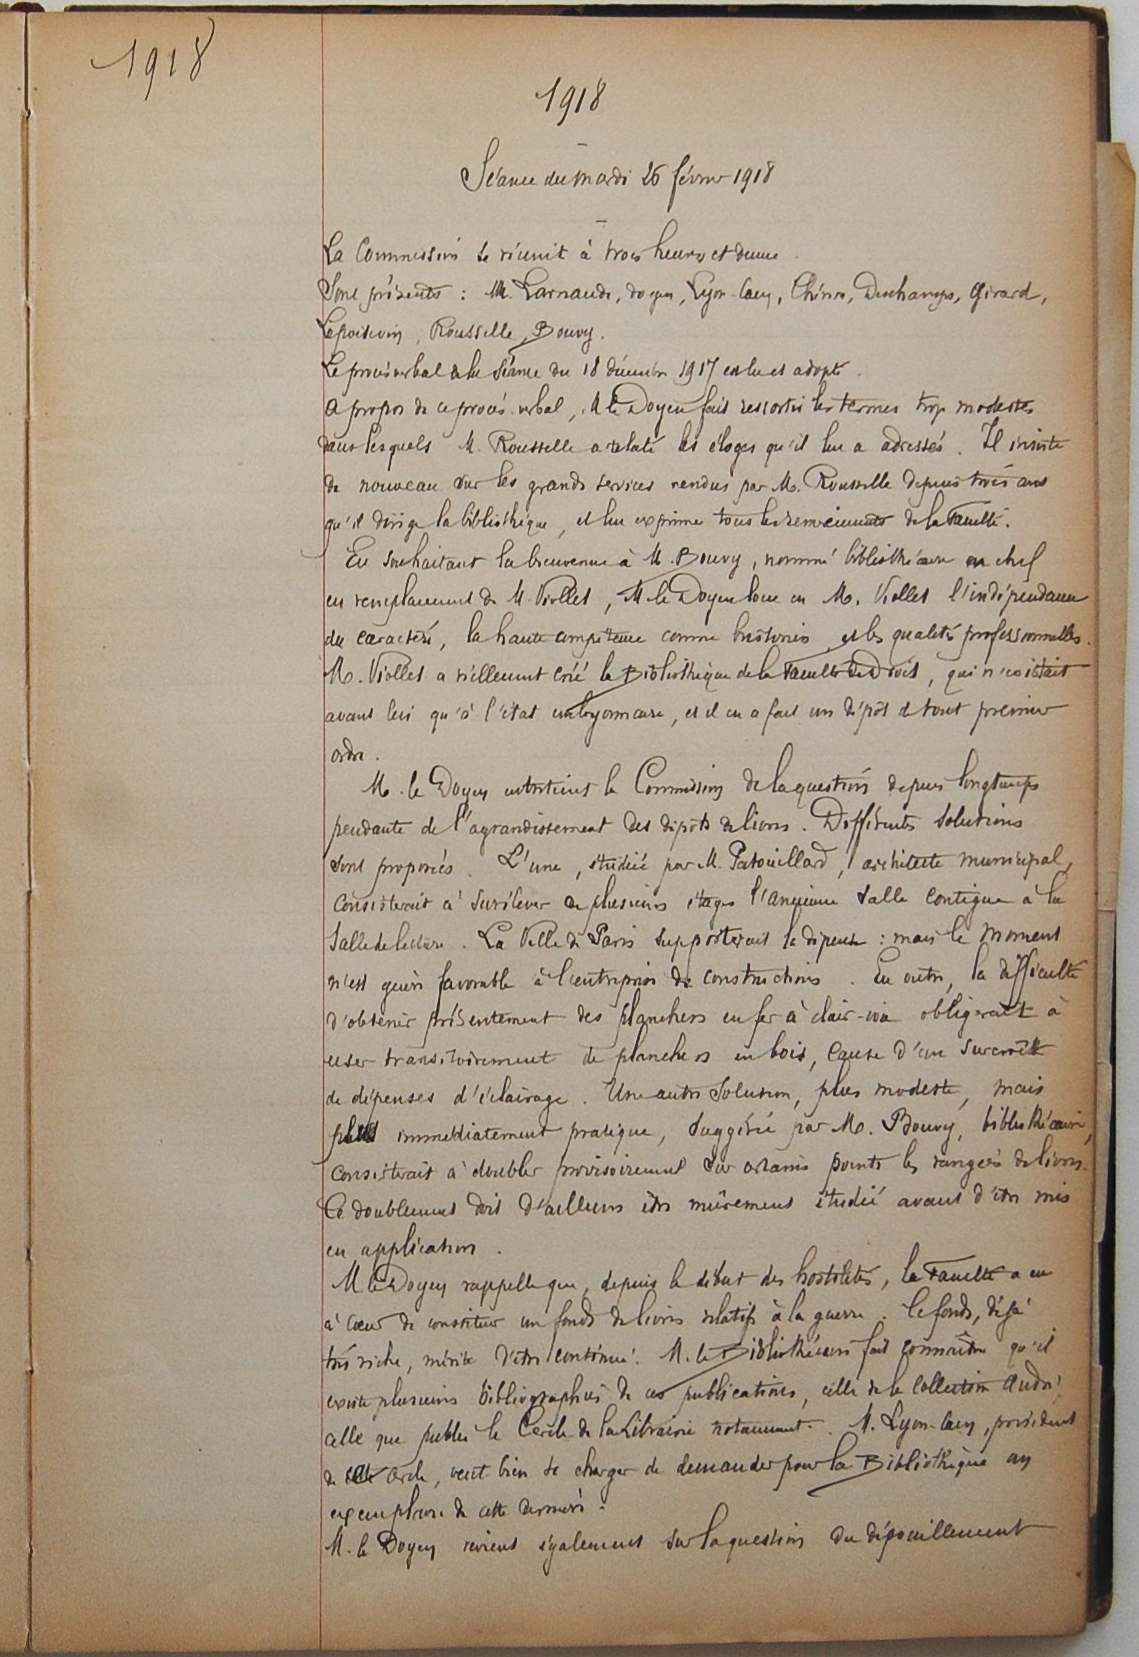 1918
1918
Séance du mardi 26 février 1918
La Commission se réunit à trois heures et demie.
Sont présents : M. Larnaude, doyen, Lyon-Caen, Chénon, Deschamps, Girard,
Lepoittevin, Rousselle, Bouvy.
Le procès verbal de la séance du 18 décembre 1917 est lu et adopté.
A propos de ce procès-verbal, M. le Doyen fait ressortir les termes trop modestes
dans lesquels M. Rousselle a relaté les éloges qu'il lui a adressés. Il insiste
de nouveau sur les grands services rendus par M. Rousselle depuis trois ans
qu'il dirige la bibliothèque, et lui exprime tous les remerciements de la Faculté.
En souhaitant la bienvenue à M. Bouvy, nommé bibliothécaire en chef
en remplacement de M. Viollet, M. le Doyen loue en M. Viollet l'indépendance
du caractère, la haute compétence comme historien, et les qualités professionnelles.
M. Viollet a réellement créé la Bibliothèque de la Faculté de Droit, qui n'existait
avant lui qu'à l'état embryonnaire, et il en a fait un dépôt de tout premier
ordre.
M. le Doyen entretient la Commission de la question depuis longtemps
pendante de l'agrandissement des dépôts de livres. Différentes solutions
sont proposées. L'une, étudiée par M. Patouillard, architecte municipal,
consisterait à surélever de plusieurs étages l'ancienne salle contigue à la
salle de lecture. La Ville de Paris supporterait la dépense : mais le moment
n'est guère favorable à l'entreprise de constructions. En outre, la difficulté
d'obtenir présentement des planchers en fer à claire-voie obligerait à
user transitoirement de planchers en bois, cause d'un surcroît
de dépenses d'éclairage. Une autre solution, plus modeste, mais
plus immédiatement pratique, suggérée par M. Bouvy, bibliothécaire,
consisterait à doubler provisoirement sur certains points les rangées de livres.
Ce doublement doit d'ailleurs être mûrement étudié avant d'être mis
en application.
M. le Doyen rappelle que, depuis le début des hostilités, la Faculté a eu
à coeur de constituer un fonds de livres relatifs à la guerre. Ce fonds, déjà
très riche, mérite d'être continué. M. le Bibliothécaire fait connaître qu'il
existe plusieurs bibliographies de ces publications, celle de la collection André,
celle que publie le Cercle de la Librairie notamment. M. Lyon-Caen, président
de ce Cercle, veut bien se charger de demander pour la Bibliothèque un
exemplaire de cette dernière.
M. le Doyen revient également sur la question du dépouillement